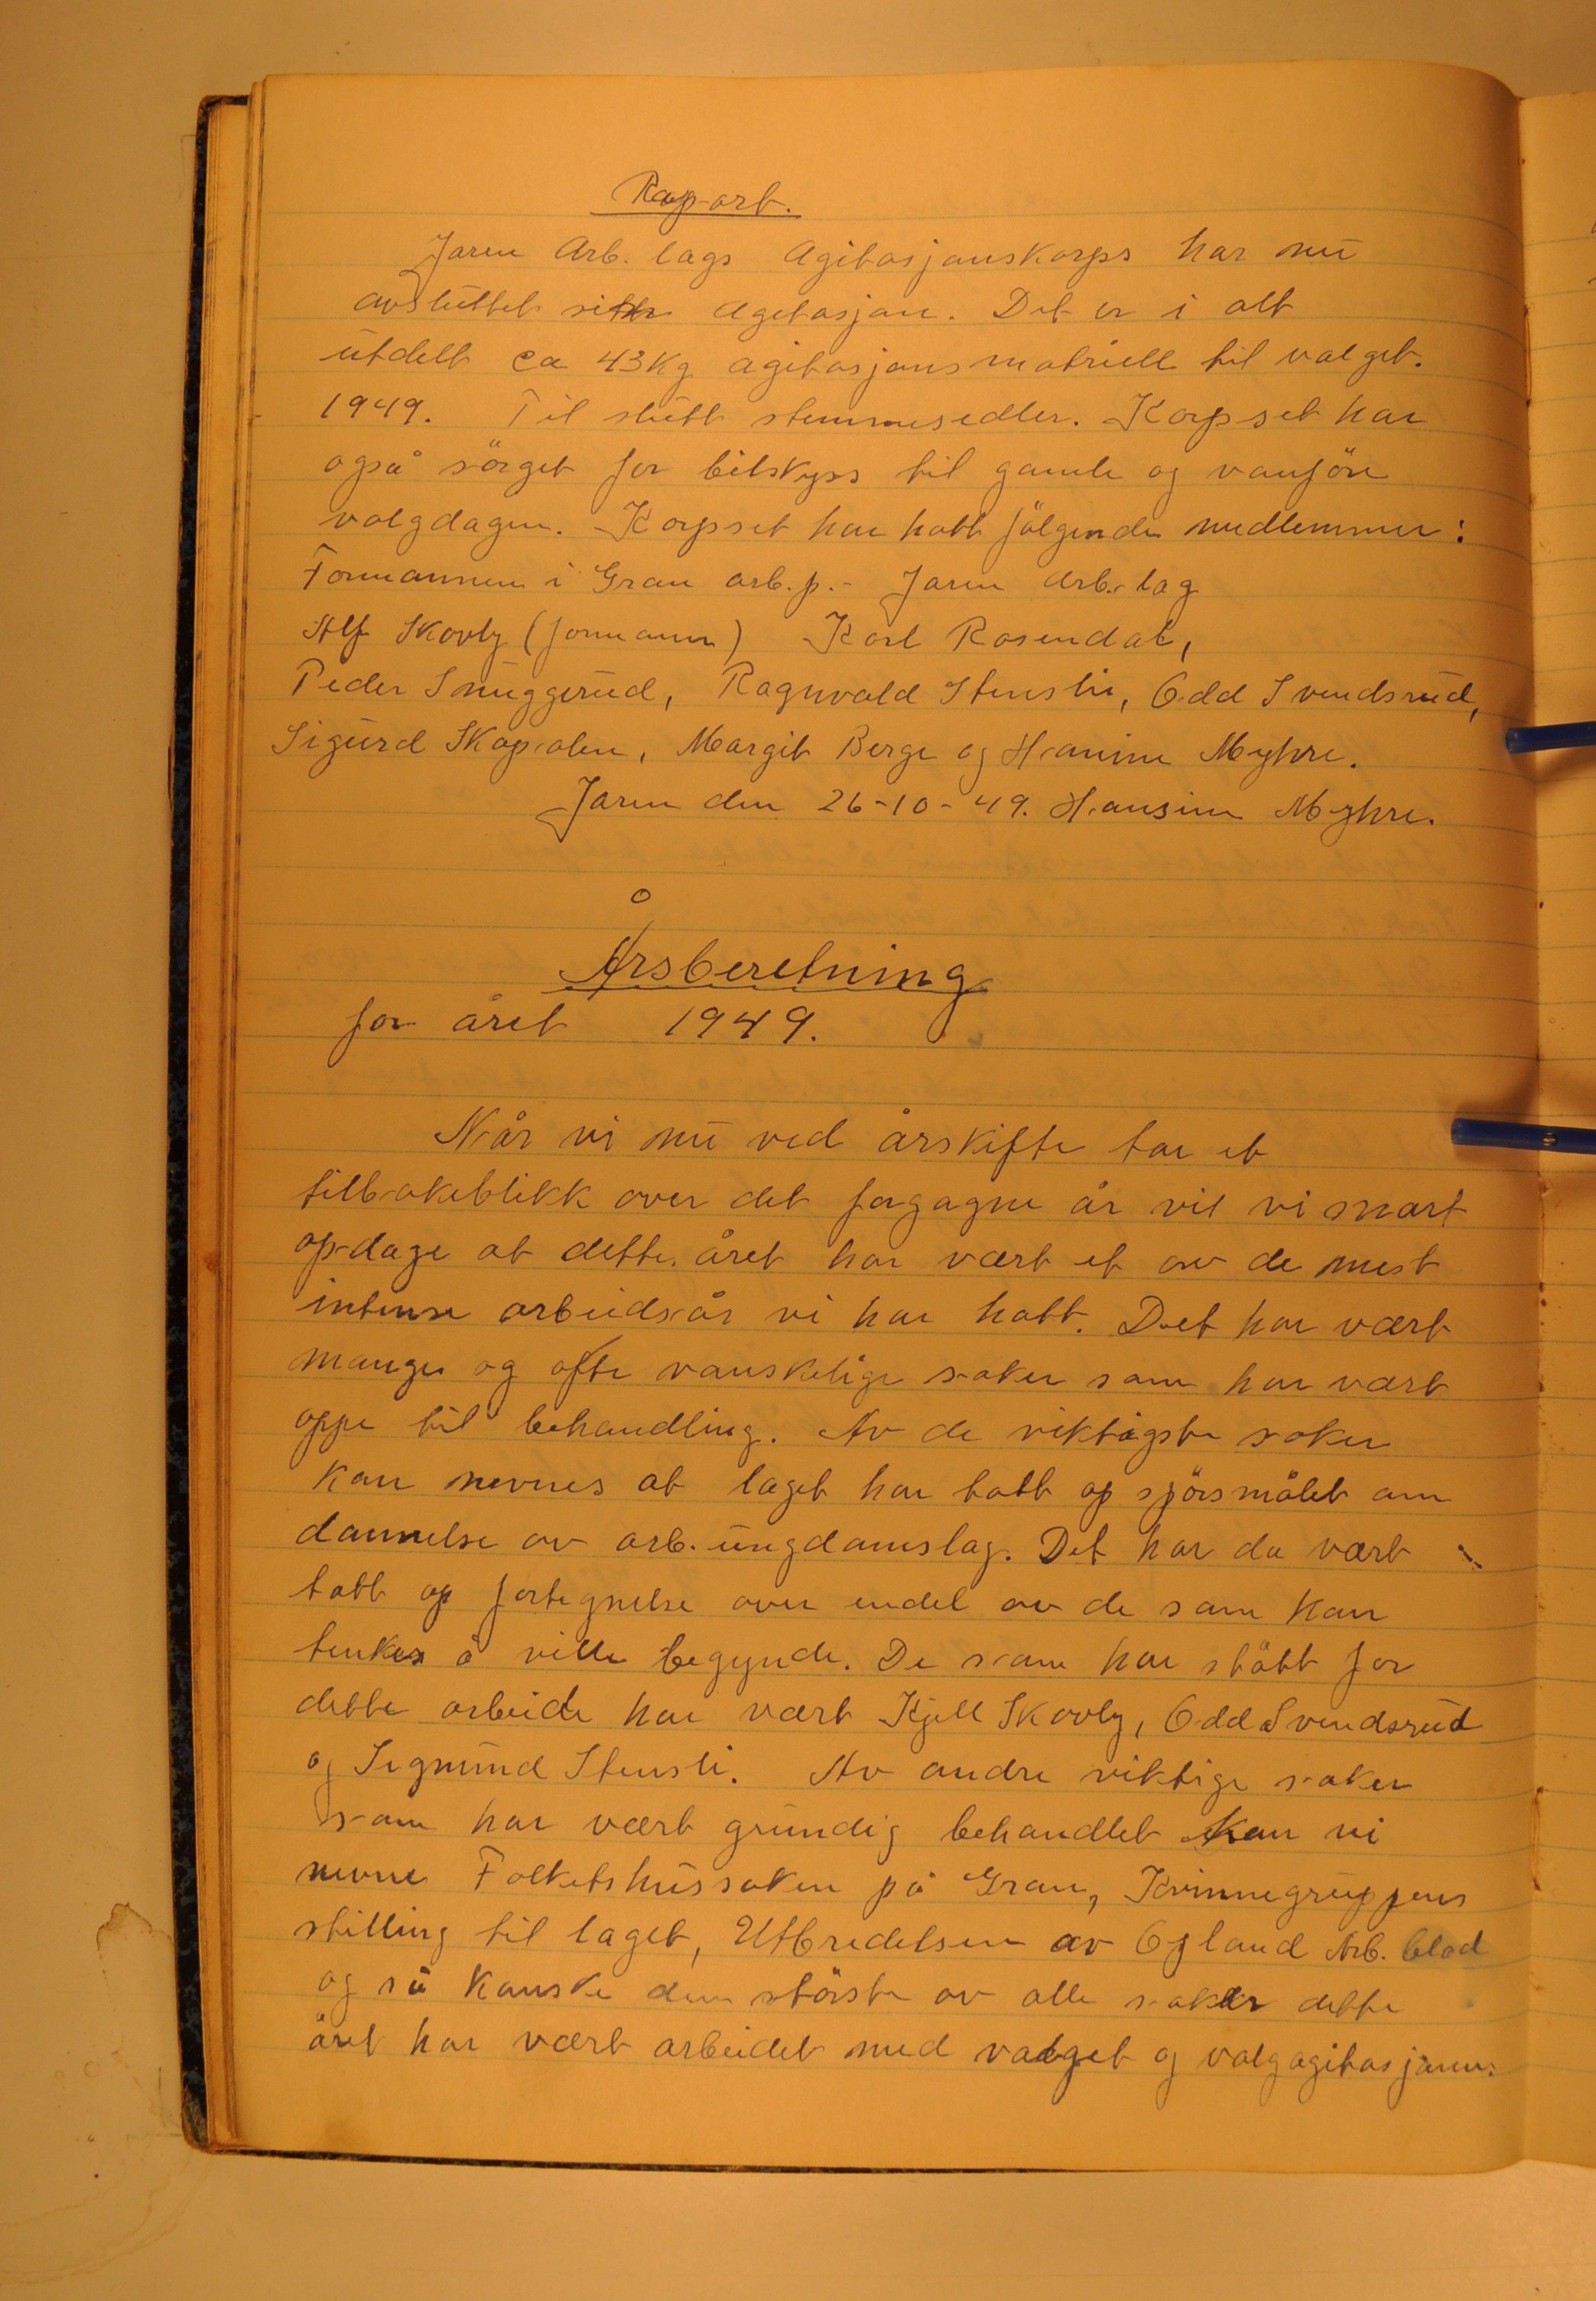 Raport.
Jaren Arb. lags Agitasjonskorps har nu
avsluttet sitt agetasjon. Det er i alt
utdelt ca 43 Kg agitasjonsmatriell til valget.
1949. Til slutt stemmesedler. Korpset har
også sörget for bilskyss til gamle og vanföre
valgdagen. Korpset har hatt fölgende medlemmer:
Formannen i Gran arb.p. - Jaren Arb. lag
Alf Skovly (formann) Karl Rosendal,
Peder Snuggerud, Ragnvald Stensli, Odd Svendsrud,
Sigurd Skapalen, Margit Berge og Hansine Myhre.
Jaren den 26-10-49. Hansine Myhre.
Årsberetning
for året 1949.
Når vi nu ved årskifte tar et
tilbakeblikk over det forgagne år vil vi snart
opdage at dette året har vært et av de mest
intense arbeidsår vi har hatt. Det har vært
manger og ofte vanskelige saker som har vært
oppe til behandling. Av de viktigste saker
kan nevnes at laget har tatt op spörsmålet om
dannelse av arb. ungdomslag. Det har da vært
tatt op fortegnelse over endel av de som kan
tenkes å ville begynde. De som har stått for
dette arbeide har vært Kjell Skovly, Odd Svendsrud
og Sigmund Stensli. Av andre viktige saker
som har vært grundig behandlet kan vi
nevne Folketshussaken på Gran, Kvinnegruppens
stilling til laget, Utbredelsen av Opland Arb. blad
og så kanske den störste av alle saker dette
året har vært arbeidet med valget og valgagitasjonen.